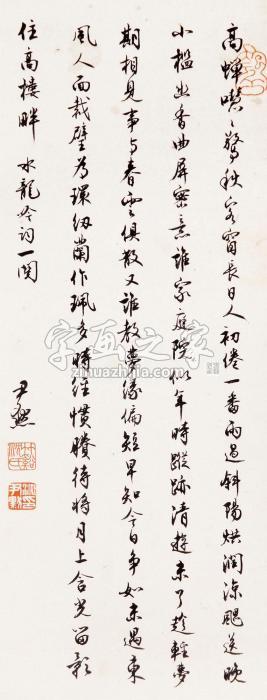 高蟬嘒々驚秋客窗長日人初倦一番雨過斜陽烘潤涼颸送晚
小檻幽香曲屏密意誰家庭院似年時蹤跡清遊未了趁輕夢
期相見事與春雲俱散又誰教夢緣偏短早知今日爭如未遇東
風人面裁璧為環紉蘭作珮多時經慣賸待將月上含光留影
住高樓畔 水龍吟詞一闋
尹默
字画之家
zihuazhijia.com